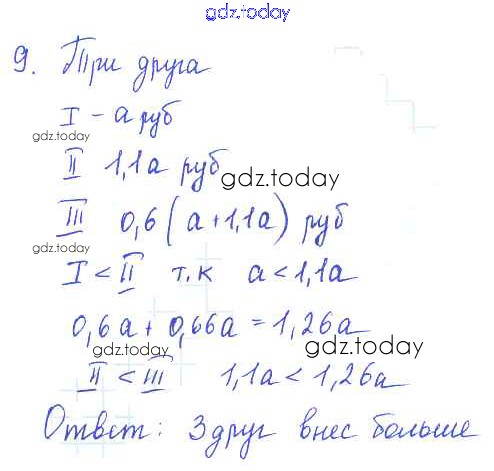 gdz.today
9. Три друга
I - а руб
gdz.today
II 1,1а руб
gdz.today
III 0,6 (а+1,1а) руб
gdz.today
I < II т.к а < 1,1а
0,6а + 0,66а = 1,26а
gdz.today
II < III 1,1а < 1,26а
gdz.today
Ответ: 3 друг внес больше